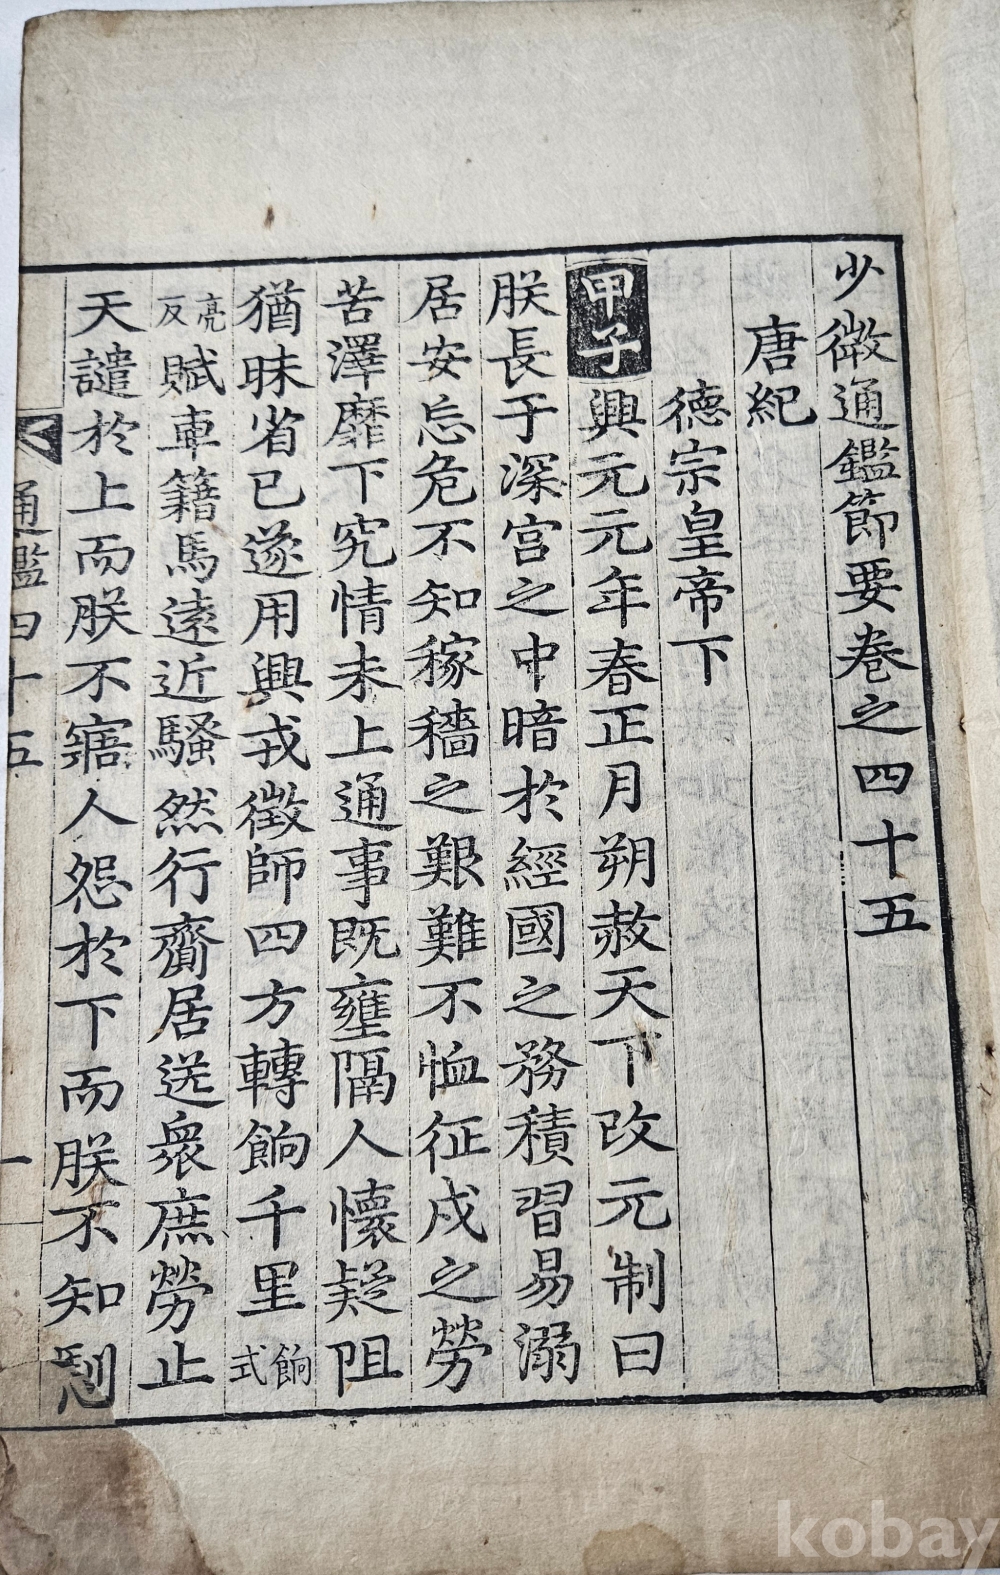 少微通鑑節要卷之四十五
唐紀
德宗皇帝下
甲子興元元年春正月朔赦天下改元制曰
朕長于深宮之中暗於經國之務積習易溺
居安忘危不知稼穡之艱難不恤征戍之勞
苦澤靡下究情未上通事既壅隔人懷疑阻
猶昧省已遂用興戎徵師四方轉餉千里餉式
亮反賦車籍馬遠近騷然行齎居送衆庶勞止
天譴於上而朕不寤人怨於下而朕不知
通鑑四十五
一
kobay